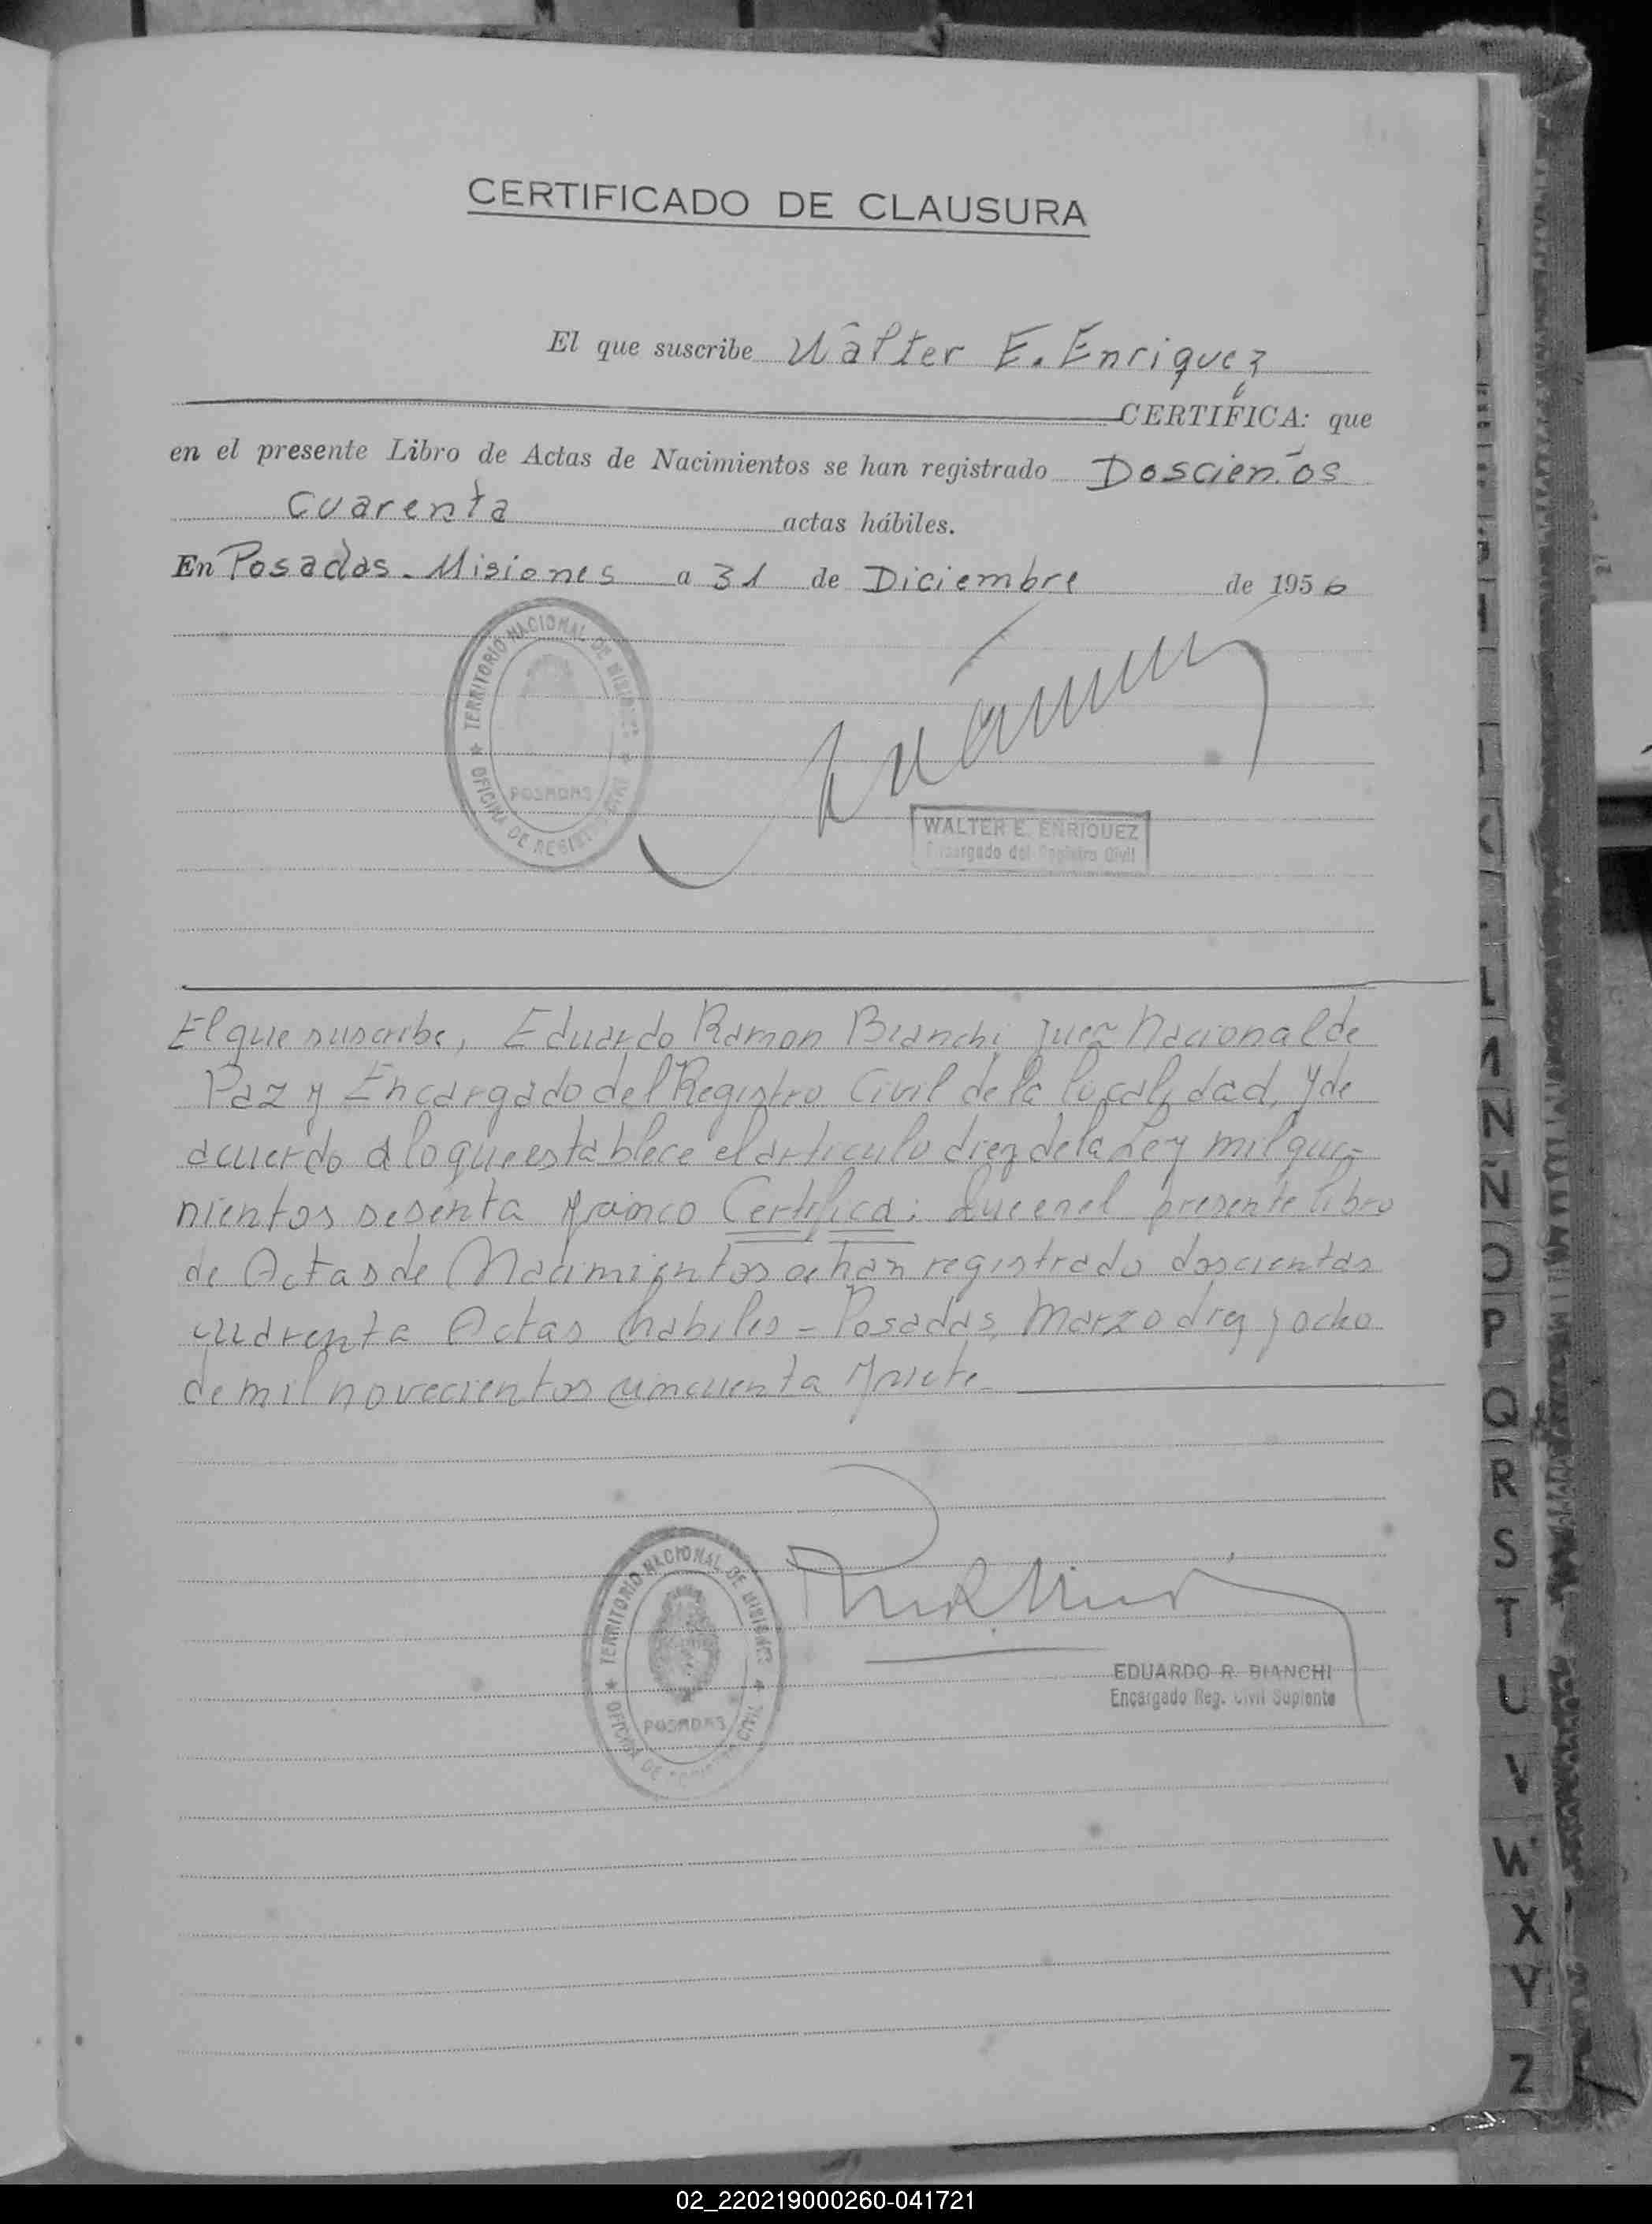 CERTIFICADO DE CLAUSURA
El que suscribe Walter E. Enriquez
CERTIFICA: que
en el presente Libro de Actas de Nacimientos se han registrado Doscientos
Cuarenta actas hábiles.
En Posadas - Misiones a 31 de Diciembre de 1956
TERRITORIO NACIONAL DE MISIONES
OFICINA DE REGISTRO CIVIL
POSADAS
WALTER E. ENRIQUEZ
Encargado del Registro Civil
El que suscribe, Eduardo Ramon Bianchi Juez Nacional de
Paz y Encargado del Registro Civil de la localidad, y de
acuerdo a lo que establece el articulo diez de la Ley mil qui-
nientos sesenta y cinco Certifica: Que en el presente libro
de Actas de Nacimientos se han registrado doscientas
cuarenta Actas habiles - Posadas, Marzo diez y ocho
de mil novecientos cincuenta y siete
TERRITORIO NACIONAL DE MISIONES
OFICINA DE REGISTRO CIVIL
POSADAS
EDUARDO R. BIANCHI
Encargado Reg. Civil Suplente
L
N
Ñ
O
P
Q
R
S
T
U
V
W
X
Y
Z
02_220219000260-041721